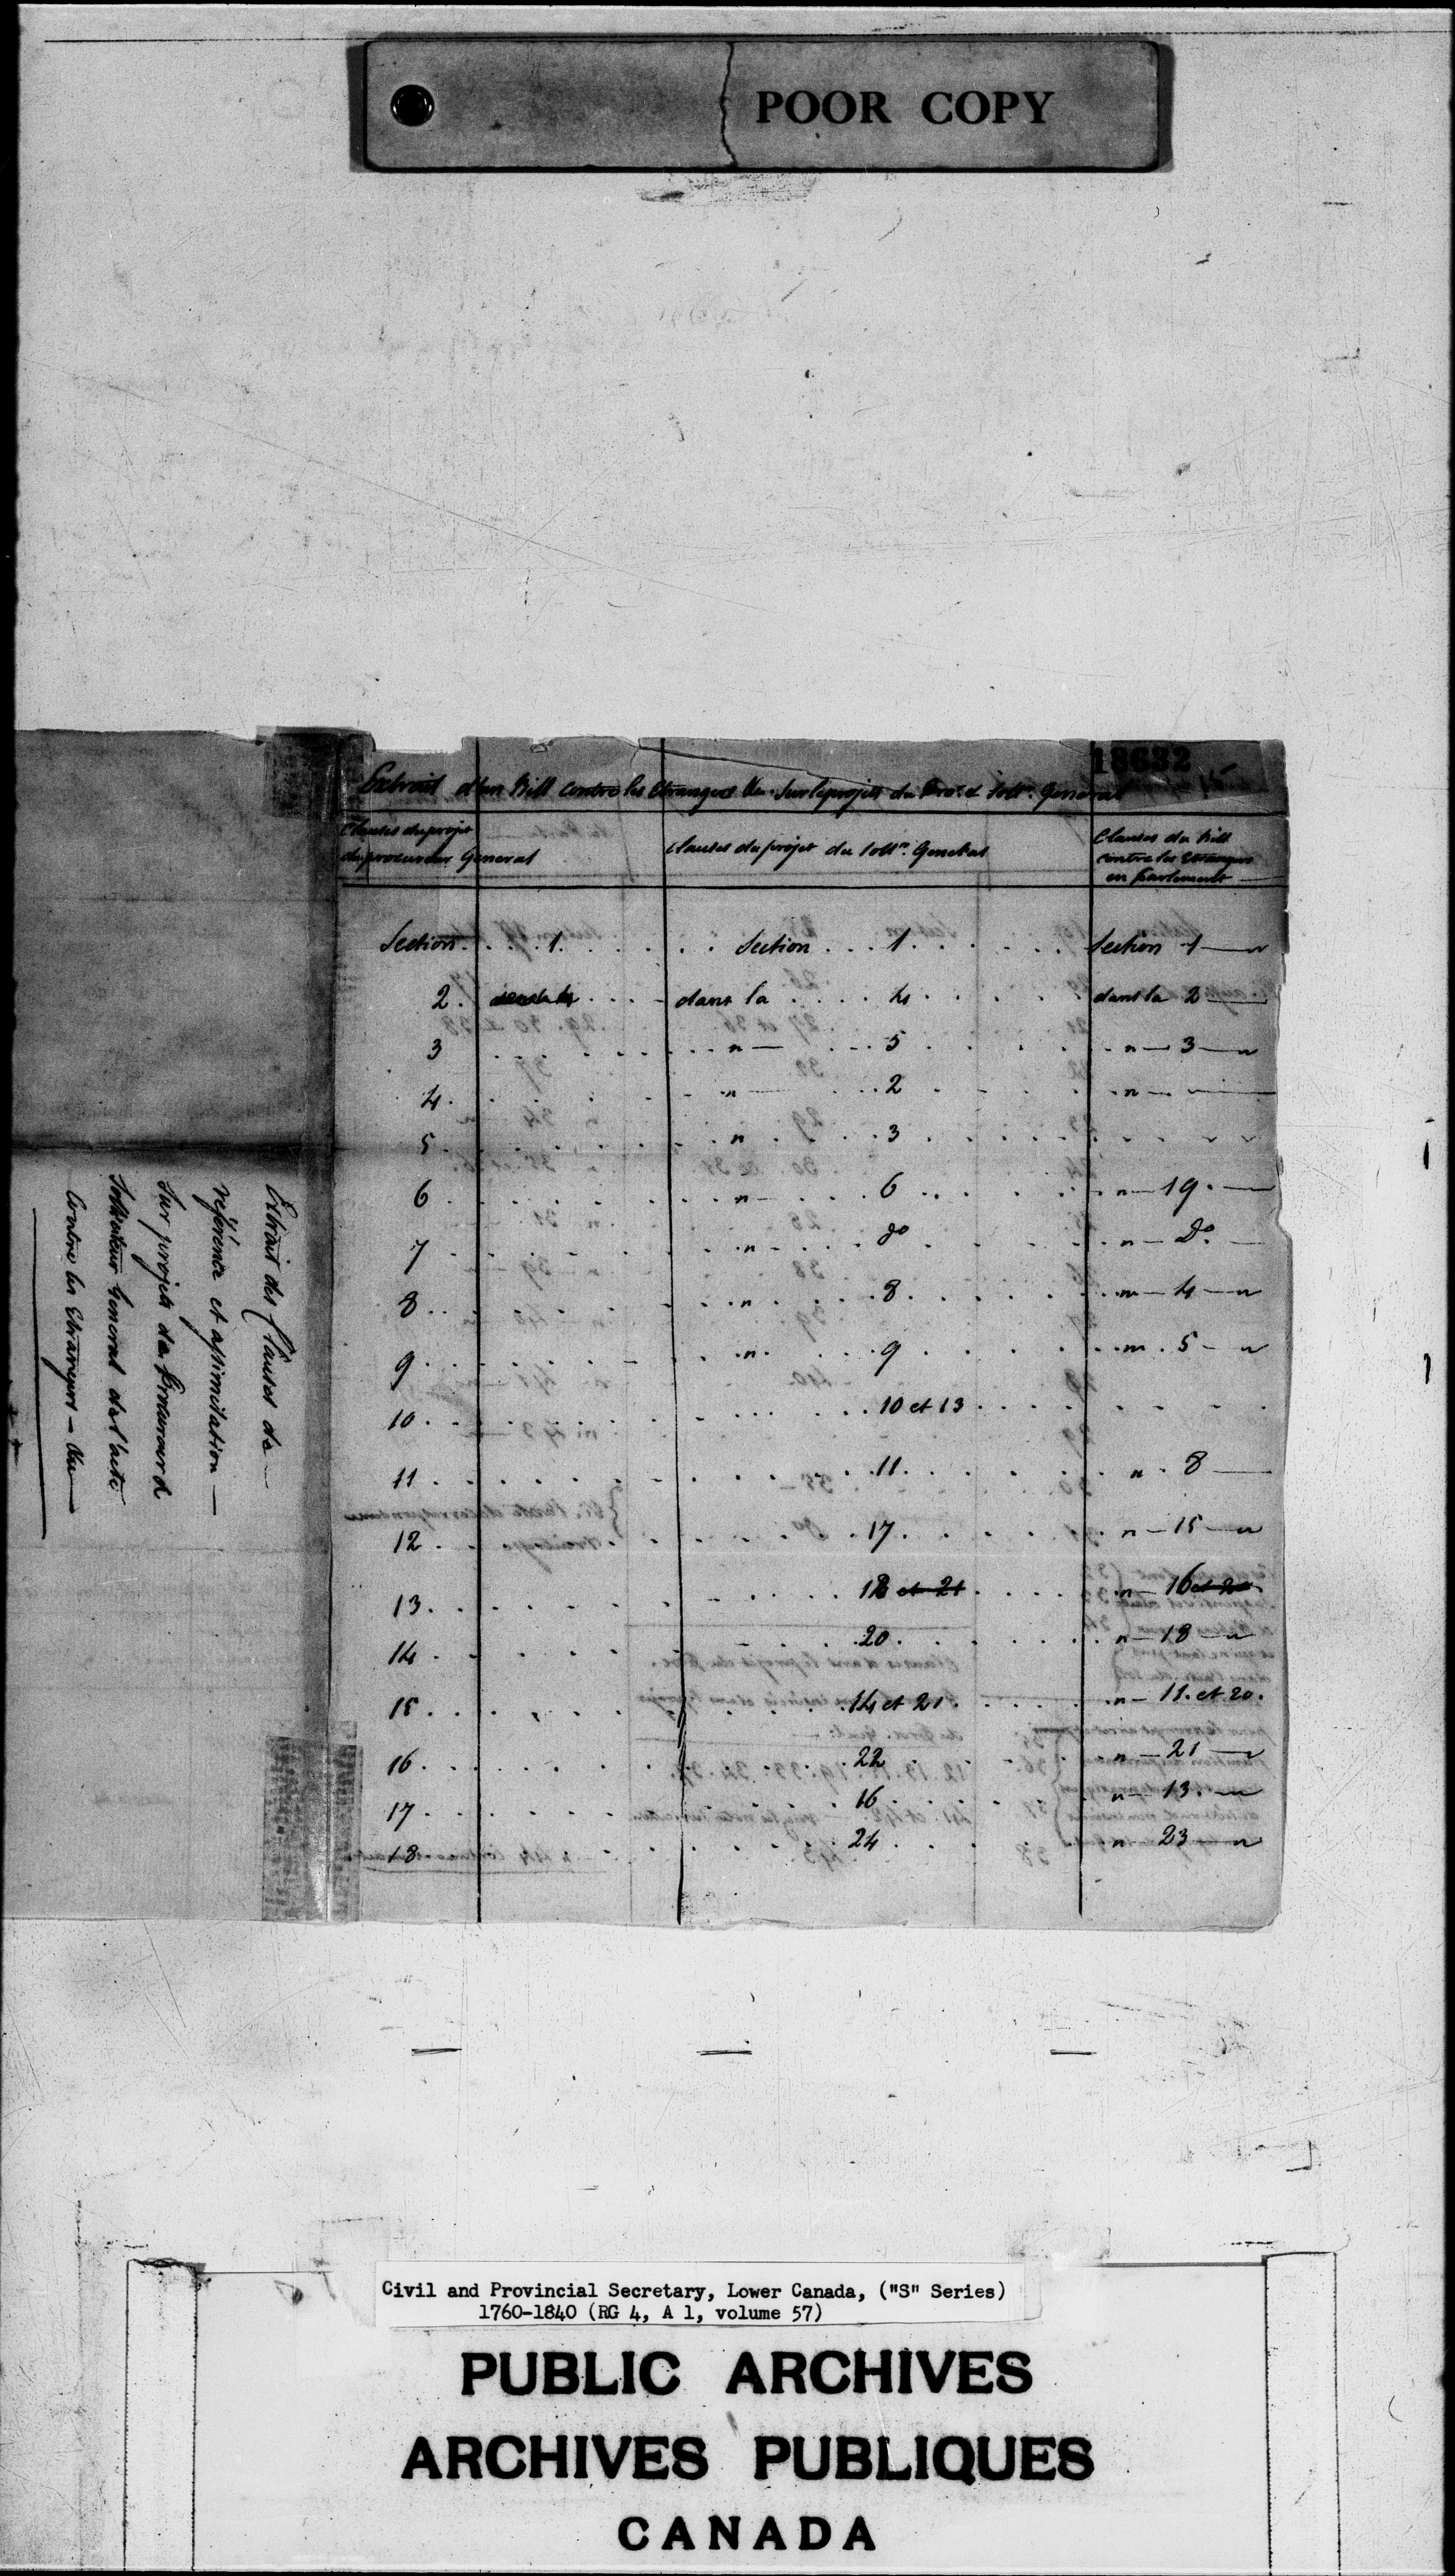 POOR COPY
18632
Extrait d'un Bill contre les Etrangers &c. Sur le projet du Pro.r & Soll.r General
Clauses du projet
du procureur General
Clauses du projet du Soll.r General
Clauses du Bill
contre les Etrangers
en parlement
Section . . . 1 . . . . . Section . . . 1 . . . . . Section 1 — "
2 . . . . dans la . . . . 4 . . . . dans la 2 —
3 . . . . " — . . . 5 . . . . " — 3 — "
4 . . . . " — . . . 2 . . . . " — —
5 . . . . " . . . . 3 . . . .
6 . . . . " — . . . 6 . . . . " — 19 . —
7 . . . . " — . . . do . . . . " — Do. —
8 . . . . " . . . . 8 . . . . " — 4 — "
9 . . . . " . . . . 9 . . . . " . 5 — "
10 . . . . . . . . 10 et 13 . . . .
11 . . . . . . . . 11 . . . . " . 8 —
12 . . . . . . . . 17 . . . . " — 15 — "
13 . . . . . . . . 18 et 21 . . . . " — 16 et 20
14 . . . . . . . . 20 . . . . " — 18 — "
15 . . . . . . . . 14 et 21 . . . . " — 11. et 20.
16 . . . . . . . . 22 . . . . " — 21 — "
17 . . . . . . . . 16 . . . . " — 13. — "
18 . . . . . . . . 24 . . . . " — 23 — "
Extrait des Clauses de —
référence et assimilation —
Sur projets du Procureur &
Solliciteur General de l'acte
Contre les Etrangers — &c —
Civil and Provincial Secretary, Lower Canada, ("S" Series)
1760-1840 (RG 4, A 1, volume 57)
PUBLIC ARCHIVES
ARCHIVES PUBLIQUES
CANADA